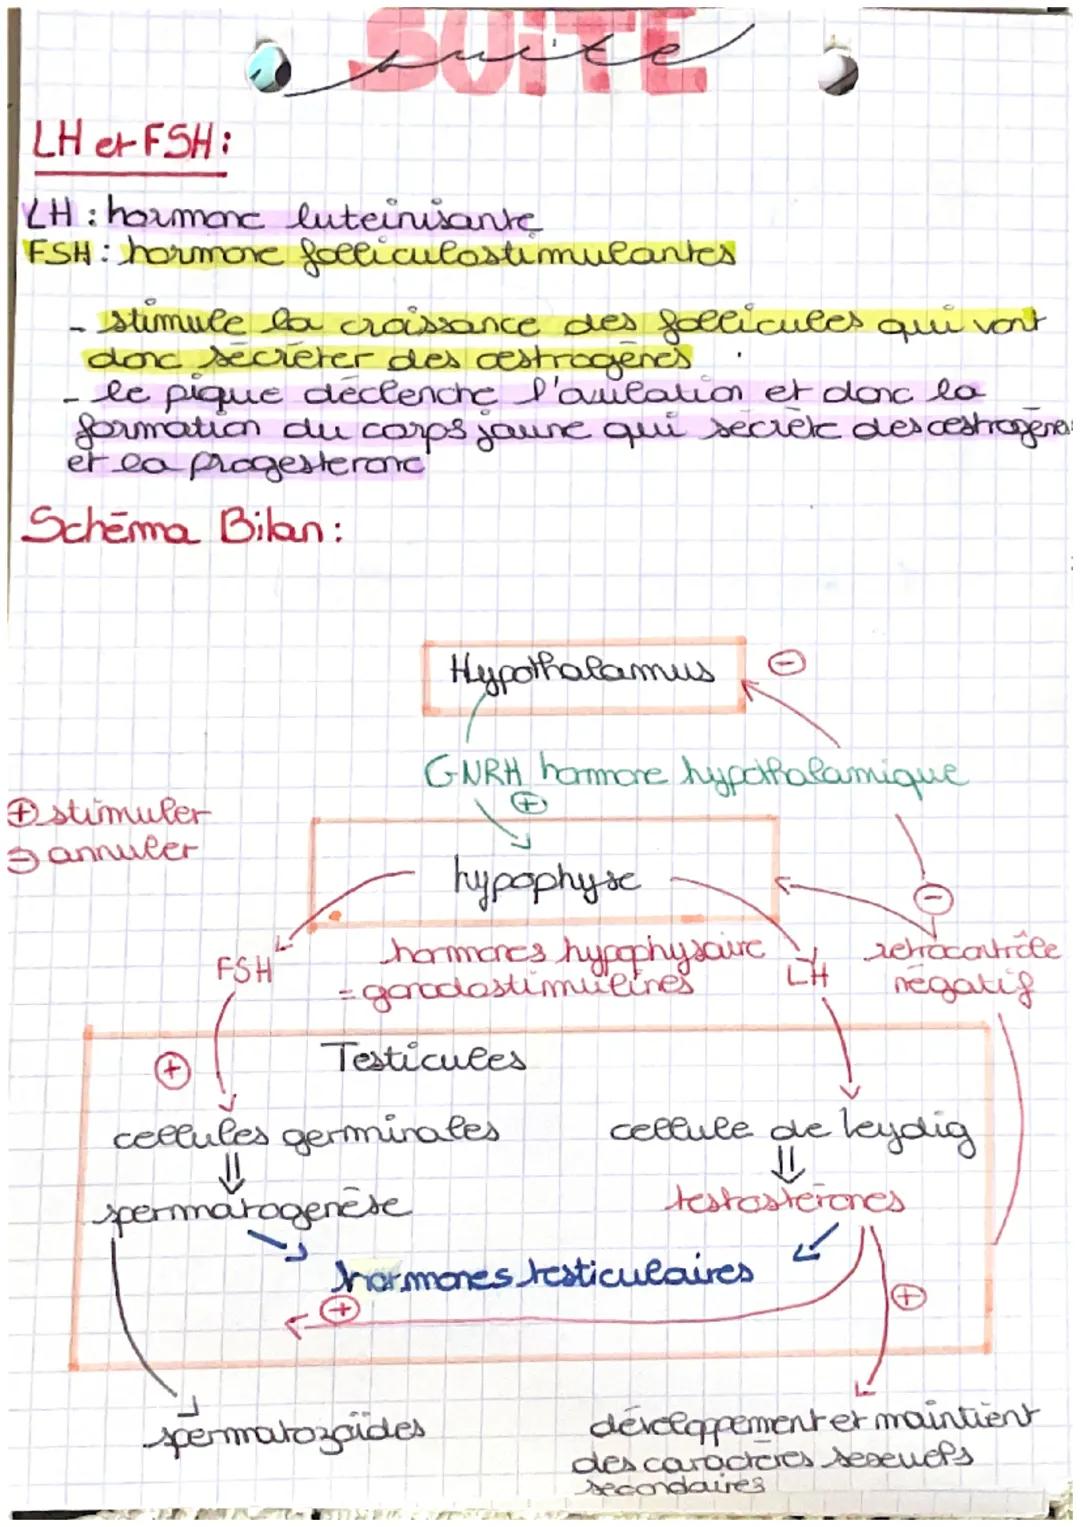 SUITE
suite
LH et FSH :
LH : hormone luteinisante
FSH : hormone folliculostimulantes
- stimule la croissance des follicules qui vont
donc sécréter des œstrogènes
- le pique déclenche l'ovulation et donc la
formation du corps jaune qui sécrète des œstrogènes
et la progesterone
Schéma Bilan :
Hypothalamus
⊖
GNRH hormone hypothalamique
⊕
⊕ stimuler
⊖ annuler
hypophyse
⊖
FSH
hormones hypophysaire
= gonadostimulines
LH
retrocontrôle
négatif
Testicules
⊕
cellules germinales
cellule de leydig
spermatogenèse
testostérones
hormones testiculaires
⊕
⊕
spermatozoïdes
développement et maintient
des caractères sexuels
secondaires